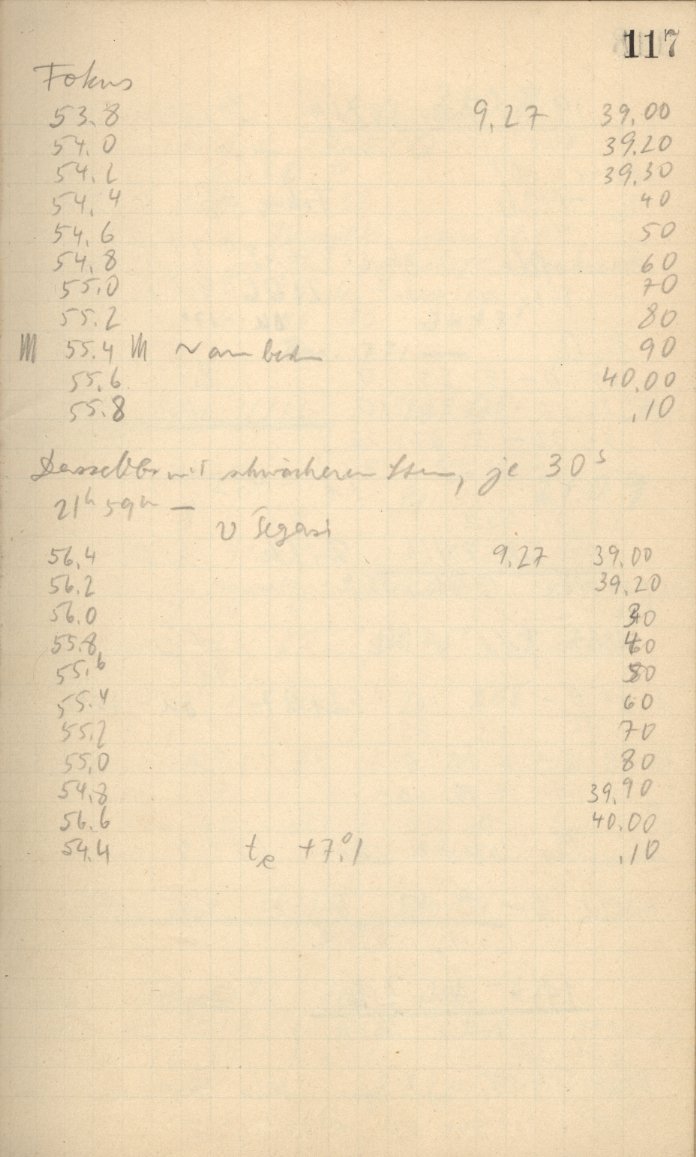 117
Fokus
53.8 9,27 39,00
54.0 39,20
54.2 39,30
54.4 40
54.6 50
54.8 60
55.0 70
55.2 80
55.4 90
55.6 40,00
55.8 ,10
Dasselbe mit schwächeren Stern, je 30s
21h 59m —
υ Pegasi
56,4 9,27 39,00
56.2 39,20
56.0 30
55.8 40
55.6 50
55.4 60
55.2 70
55,0 80
54.8 39,90
56.6 40,00
54.4 te +7.°1 ,10